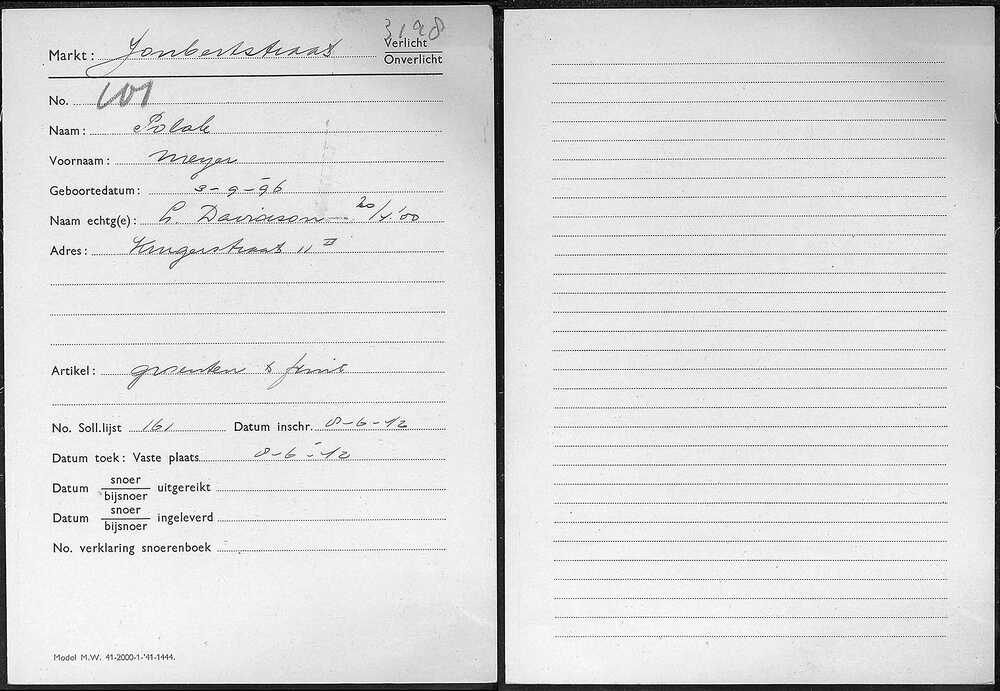 3198
Markt: Joubertstraat Verlicht
Onverlicht
No. 101
Naam: Polak
Voornaam: Meyer
Geboortedatum: 3-9-96
Naam echtg(e): L. Davidson 20/4'00
Adres: Krugerstraat 11 II
Artikel: groenten & fruit
No. Soll.lijst 161 Datum inschr. 8-6-42
Datum toek: Vaste plaats 8-6-42
Datum snoer/bijsnoer uitgereikt
Datum snoer/bijsnoer ingeleverd
No. verklaring snoerenboek
Model M.W. 41-2000-1-'41-1444.